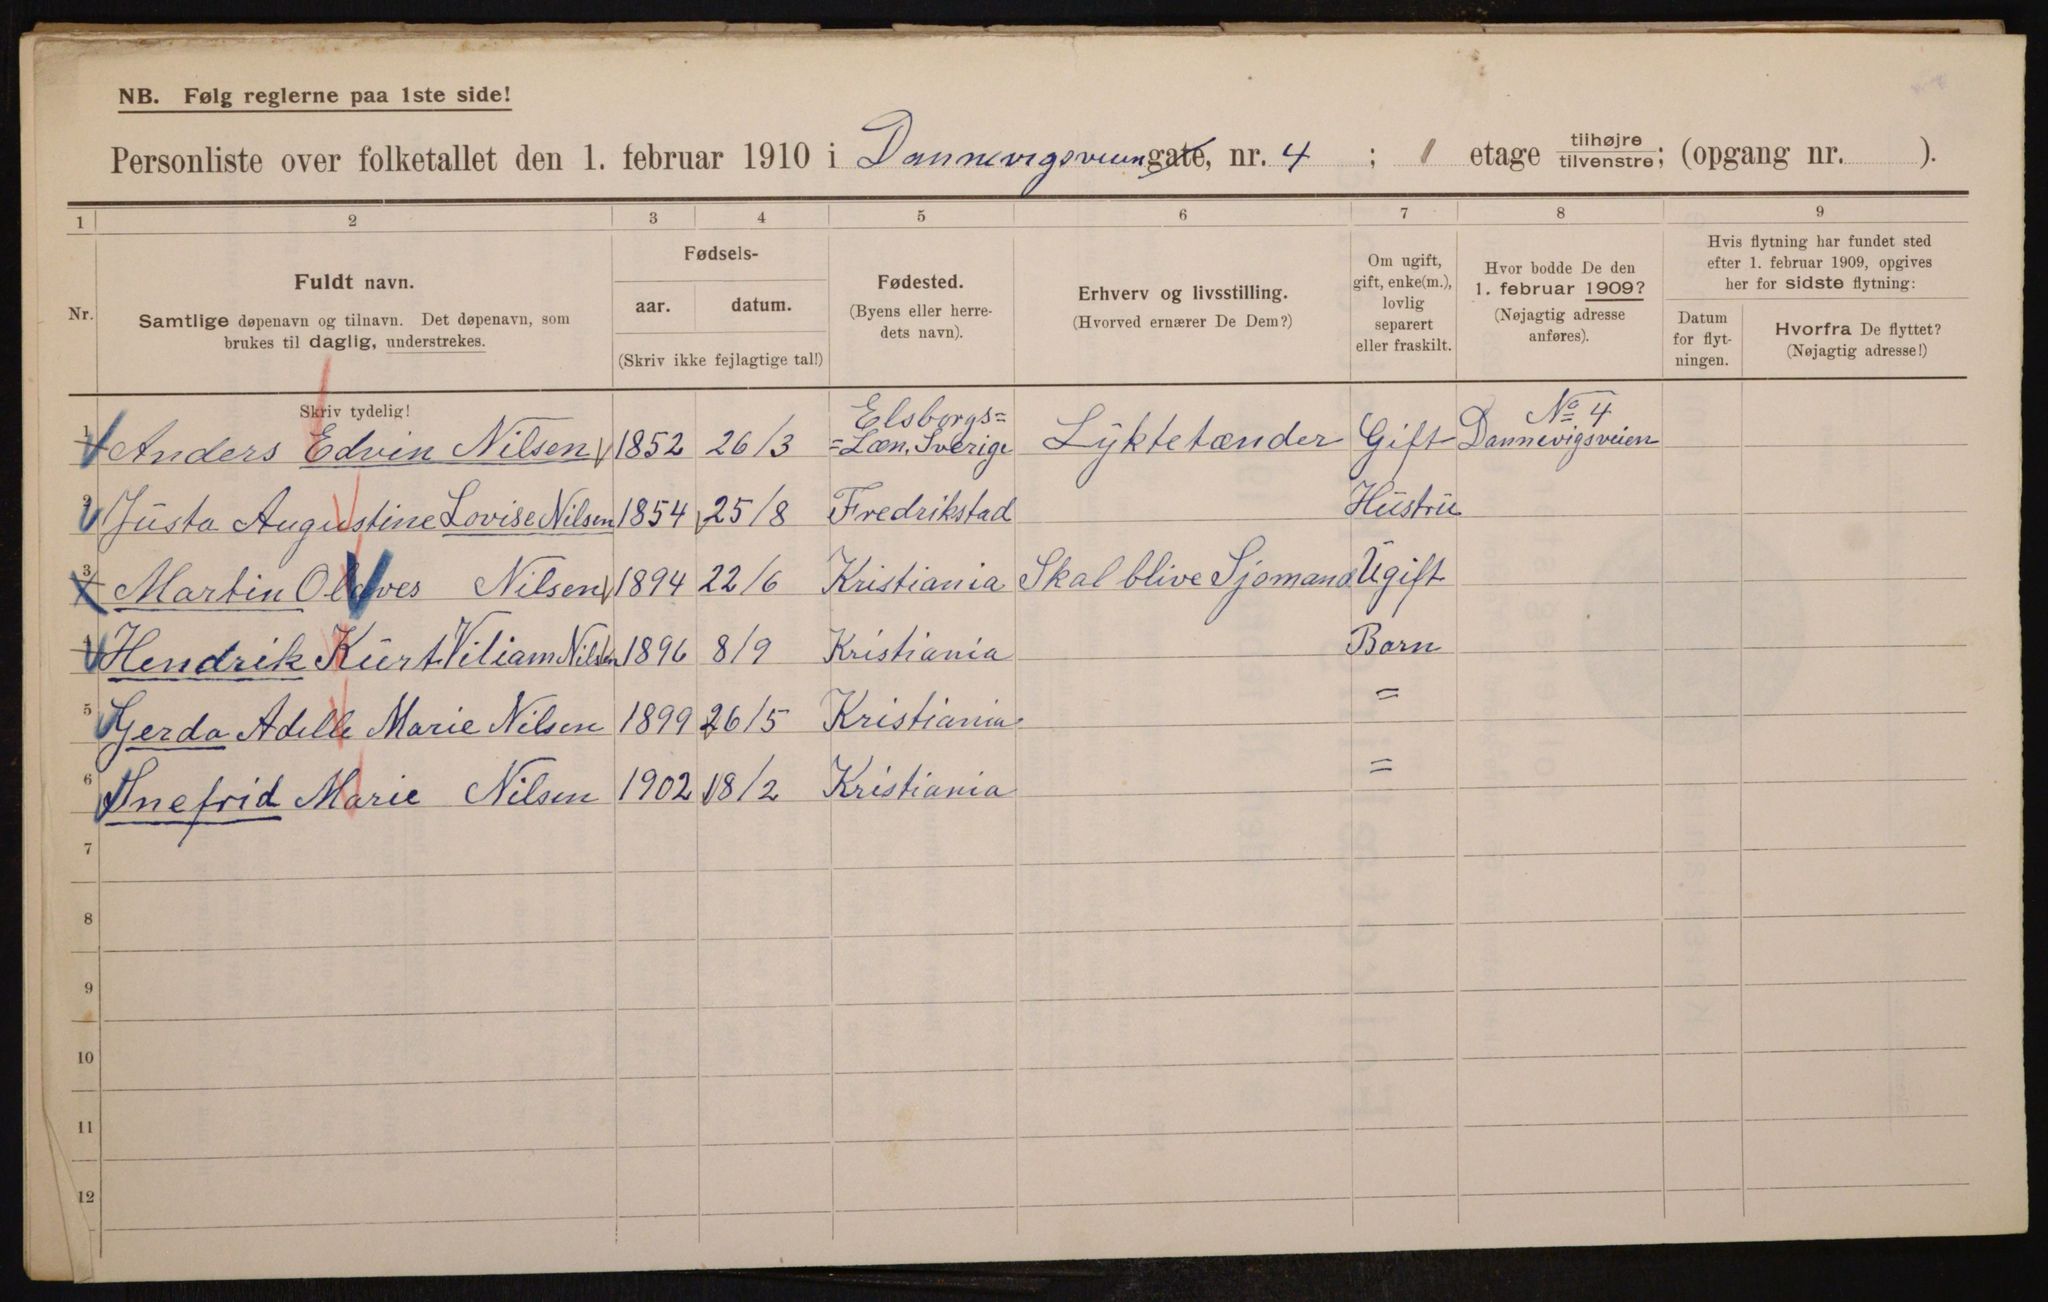 NB. Følg reglerne paa 1ste side!
Personliste over folketallet den 1. februar 1910 i Dannevigsveien gate, nr. 4 ; 1 etage tilhøjre tilvenstre; (opgang nr. ).
1 2 3 4 5 6 7 8 9
Nr.
Fuldt navn.
Samtlige døpenavn og tilnavn. Det døpenavn, som
brukes til daglig, understrekes.
Fødsels-
aar. datum.
(Skriv ikke fejlagtige tal!)
Fødested.
(Byens eller herre-
dets navn).
Erhverv og livsstilling.
(Hvorved ernærer De Dem?)
Om ugift,
gift, enke(m.),
lovlig
separert
eller fraskilt.
Hvor bodde De den
1. februar 1909?
(Nøjagtig adresse
anføres).
Hvis flytning har fundet sted
efter 1. februar 1909, opgives
her for sidste flytning:
Datum
for flyt-
ningen.
Hvorfra De flyttet?
(Nøjagtig adresse!)
Skriv tydelig!
1 Anders Edvin Nilsen 1852 26/3 Elsborgs= =Læn, Sverige Lyktetænder Gift No 4 Dannevigsveien
2 Justa Augustine Lovise Nilsen 1854 25/8 Fredrikstad Hustru
3 Martin Nilsen 1894 22/6 Kristiania Skal blive Sjomand Ugift
4 Hendrik Kurt Viliam Nilsen 1896 8/9 Kristiania Barn
5 Gerda Adelle Marie Nilsen 1899 26/5 Kristiania =
6 Snefrid Marie Nilsen 1902 18/2 Kristiania =
7
8
9
10
11
12